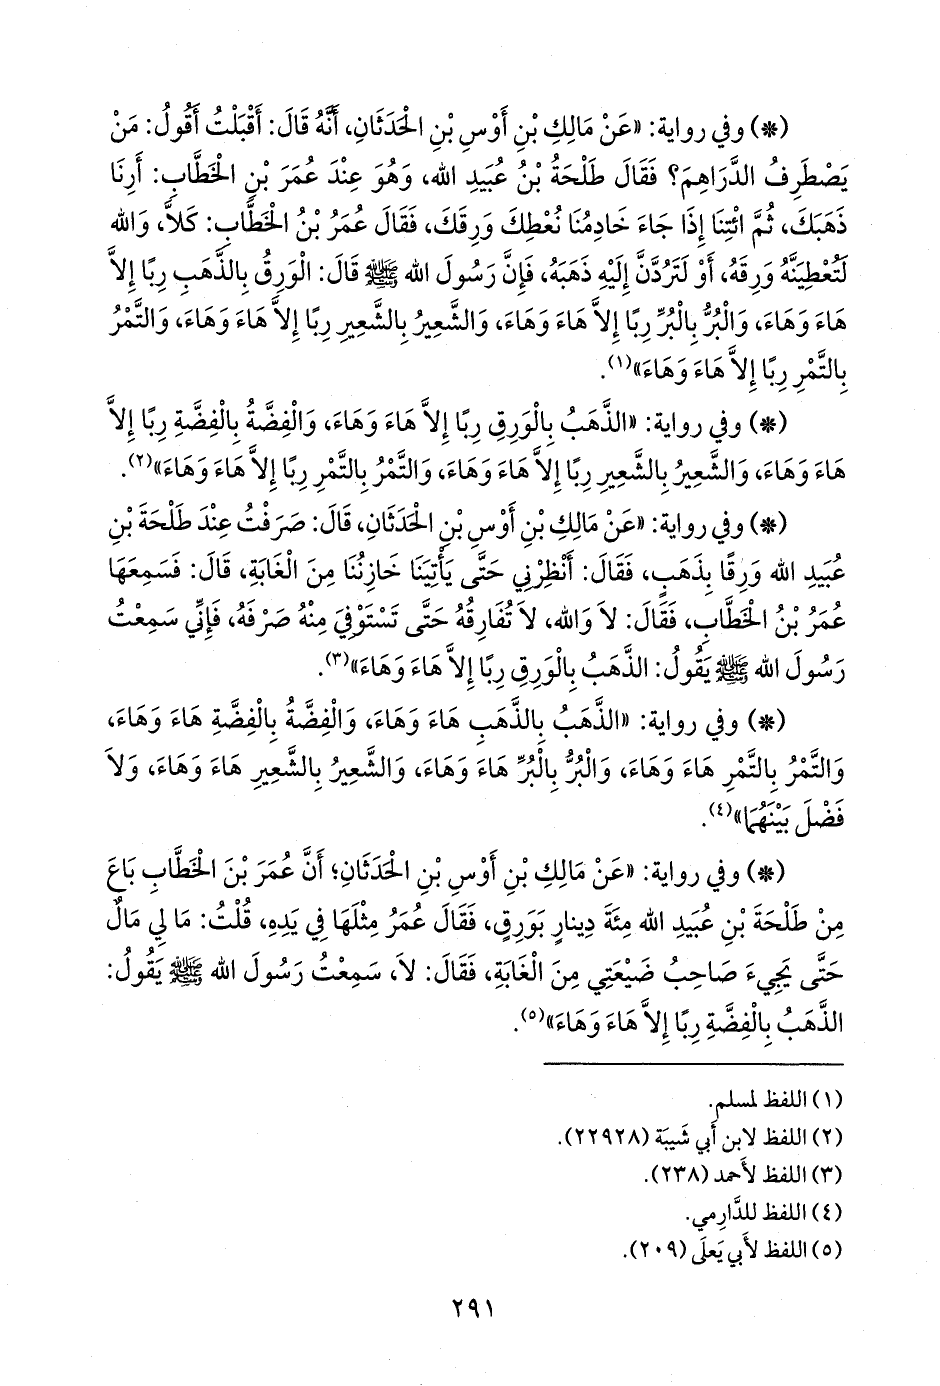 (*) وفي رواية: «عَنْ مَالِكِ بْنِ أَوْسِ بْنِ الْحَدَثَانِ، أَنَّهُ قَالَ: أَقْبَلْتُ أَقُولُ: مَنْ
يَصْطَرِفُ الدَّرَاهِمَ؟ فَقَالَ طَلْحَةُ بْنُ عُبَيدِ الله، وَهُوَ عِنْدَ عُمَرَ بْنِ الْخَطَّابِ: أَرِنَا
ذَهَبَكَ، ثُمَّ ائْتِنَا إِذَا جَاءَ خَادِمُنَا نُعْطِكَ وَرِقَكَ، فَقَالَ عُمَرُ بْنُ الْخَطَّابِ: كَلاَّ، وَالله
لَتُعْطِيَنَّهُ وَرِقَهُ، أَوْ لَتَرُدَّنَّ إِلَيْهِ ذَهَبَهُ، فَإِنَّ رَسُولَ الله ﷺ قَالَ: الْوَرِقُ بِالذَّهَبِ رِبًا إِلاَّ
هَاءَ وَهَاءَ، وَالْبُرُّ بِالْبُرِّ رِبًا إِلاَّ هَاءَ وَهَاءَ، وَالشَّعِيرُ بِالشَّعِيرِ رِبًا إِلاَّ هَاءَ وَهَاءَ، وَالتَّمْرُ
بِالتَّمْرِ رِبًا إِلاَّ هَاءَ وَهَاءَ»(١).
(*) وفي رواية: «الذَّهَبُ بِالْوَرِقِ رِبًا إِلاَّ هَاءَ وَهَاءَ، وَالْفِضَّةُ بِالْفِضَّةِ رِبًا إِلاَّ
هَاءَ وَهَاءَ، وَالشَّعِيرُ بِالشَّعِيرِ رِبًا إِلاَّ هَاءَ وَهَاءَ، وَالتَّمْرُ بِالتَّمْرِ رِبًا إِلاَّ هَاءَ وَهَاءَ»(٢).
(*) وفي رواية: «عَنْ مَالِكِ بْنِ أَوْسِ بْنِ الْحَدَثَانِ، قَالَ: صَرَفْتُ عِنْدَ طَلْحَةَ بْنِ
عُبَيدِ الله وَرِقًا بِذَهَبٍ، فَقَالَ: أَنْظِرْنِي حَتَّى يَأْتِيَنَا خَازِنُنَا مِنَ الْغَابَةِ، قَالَ: فَسَمِعَهَا
عُمَرُ بْنُ الْخَطَّابِ، فَقَالَ: لاَ وَالله، لاَ تُفَارِقُهُ حَتَّى تَسْتَوْفِيَ مِنْهُ صَرْفَهُ، فَإِنِّي سَمِعْتُ
رَسُولَ الله ﷺ يَقُولُ: الذَّهَبُ بِالْوَرِقِ رِبًا إِلاَّ هَاءَ وَهَاءَ»(٣).
(*) وفي رواية: «الذَّهَبُ بِالذَّهَبِ هَاءَ وَهَاءَ، وَالْفِضَّةُ بِالْفِضَّةِ هَاءَ وَهَاءَ،
وَالتَّمْرُ بِالتَّمْرِ هَاءَ وَهَاءَ، وَالْبُرُّ بِالْبُرِّ هَاءَ وَهَاءَ، وَالشَّعِيرُ بِالشَّعِيرِ هَاءَ وَهَاءَ، وَلاَ
فَضْلَ بَيْنَهُمَا»(٤).
(*) وفي رواية: «عَنْ مَالِكِ بْنِ أَوْسِ بْنِ الْحَدَثَانِ؛ أَنَّ عُمَرَ بْنَ الْخَطَّابِ بَاعَ
مِنْ طَلْحَةَ بْنِ عُبَيدِ الله مِئَةَ دِينَارٍ بَوَرِقٍ، فَقَالَ عُمَرُ مِثْلَهَا فِي يَدِهِ، قُلْتُ: مَا لِي مَالٌ
حَتَّى يَجِيءَ صَاحِبُ ضَيْعَتِي مِنَ الْغَابَةِ، فَقَالَ: لاَ، سَمِعْتُ رَسُولَ الله ﷺ يَقُولُ:
الذَّهَبُ بِالْفِضَّةِ رِبًا إِلاَّ هَاءَ وَهَاءَ»(٥).
(١) اللفظ لمسلم.
(٢) اللفظ لابن أَبي شَيبَة (٢٢٩٢٨).
(٣) اللفظ لأَحمد (٢٣٨).
(٤) اللفظ للدَّارِمي.
(٥) اللفظ لأَبي يَعلَى (٢٠٩).
٢٩١